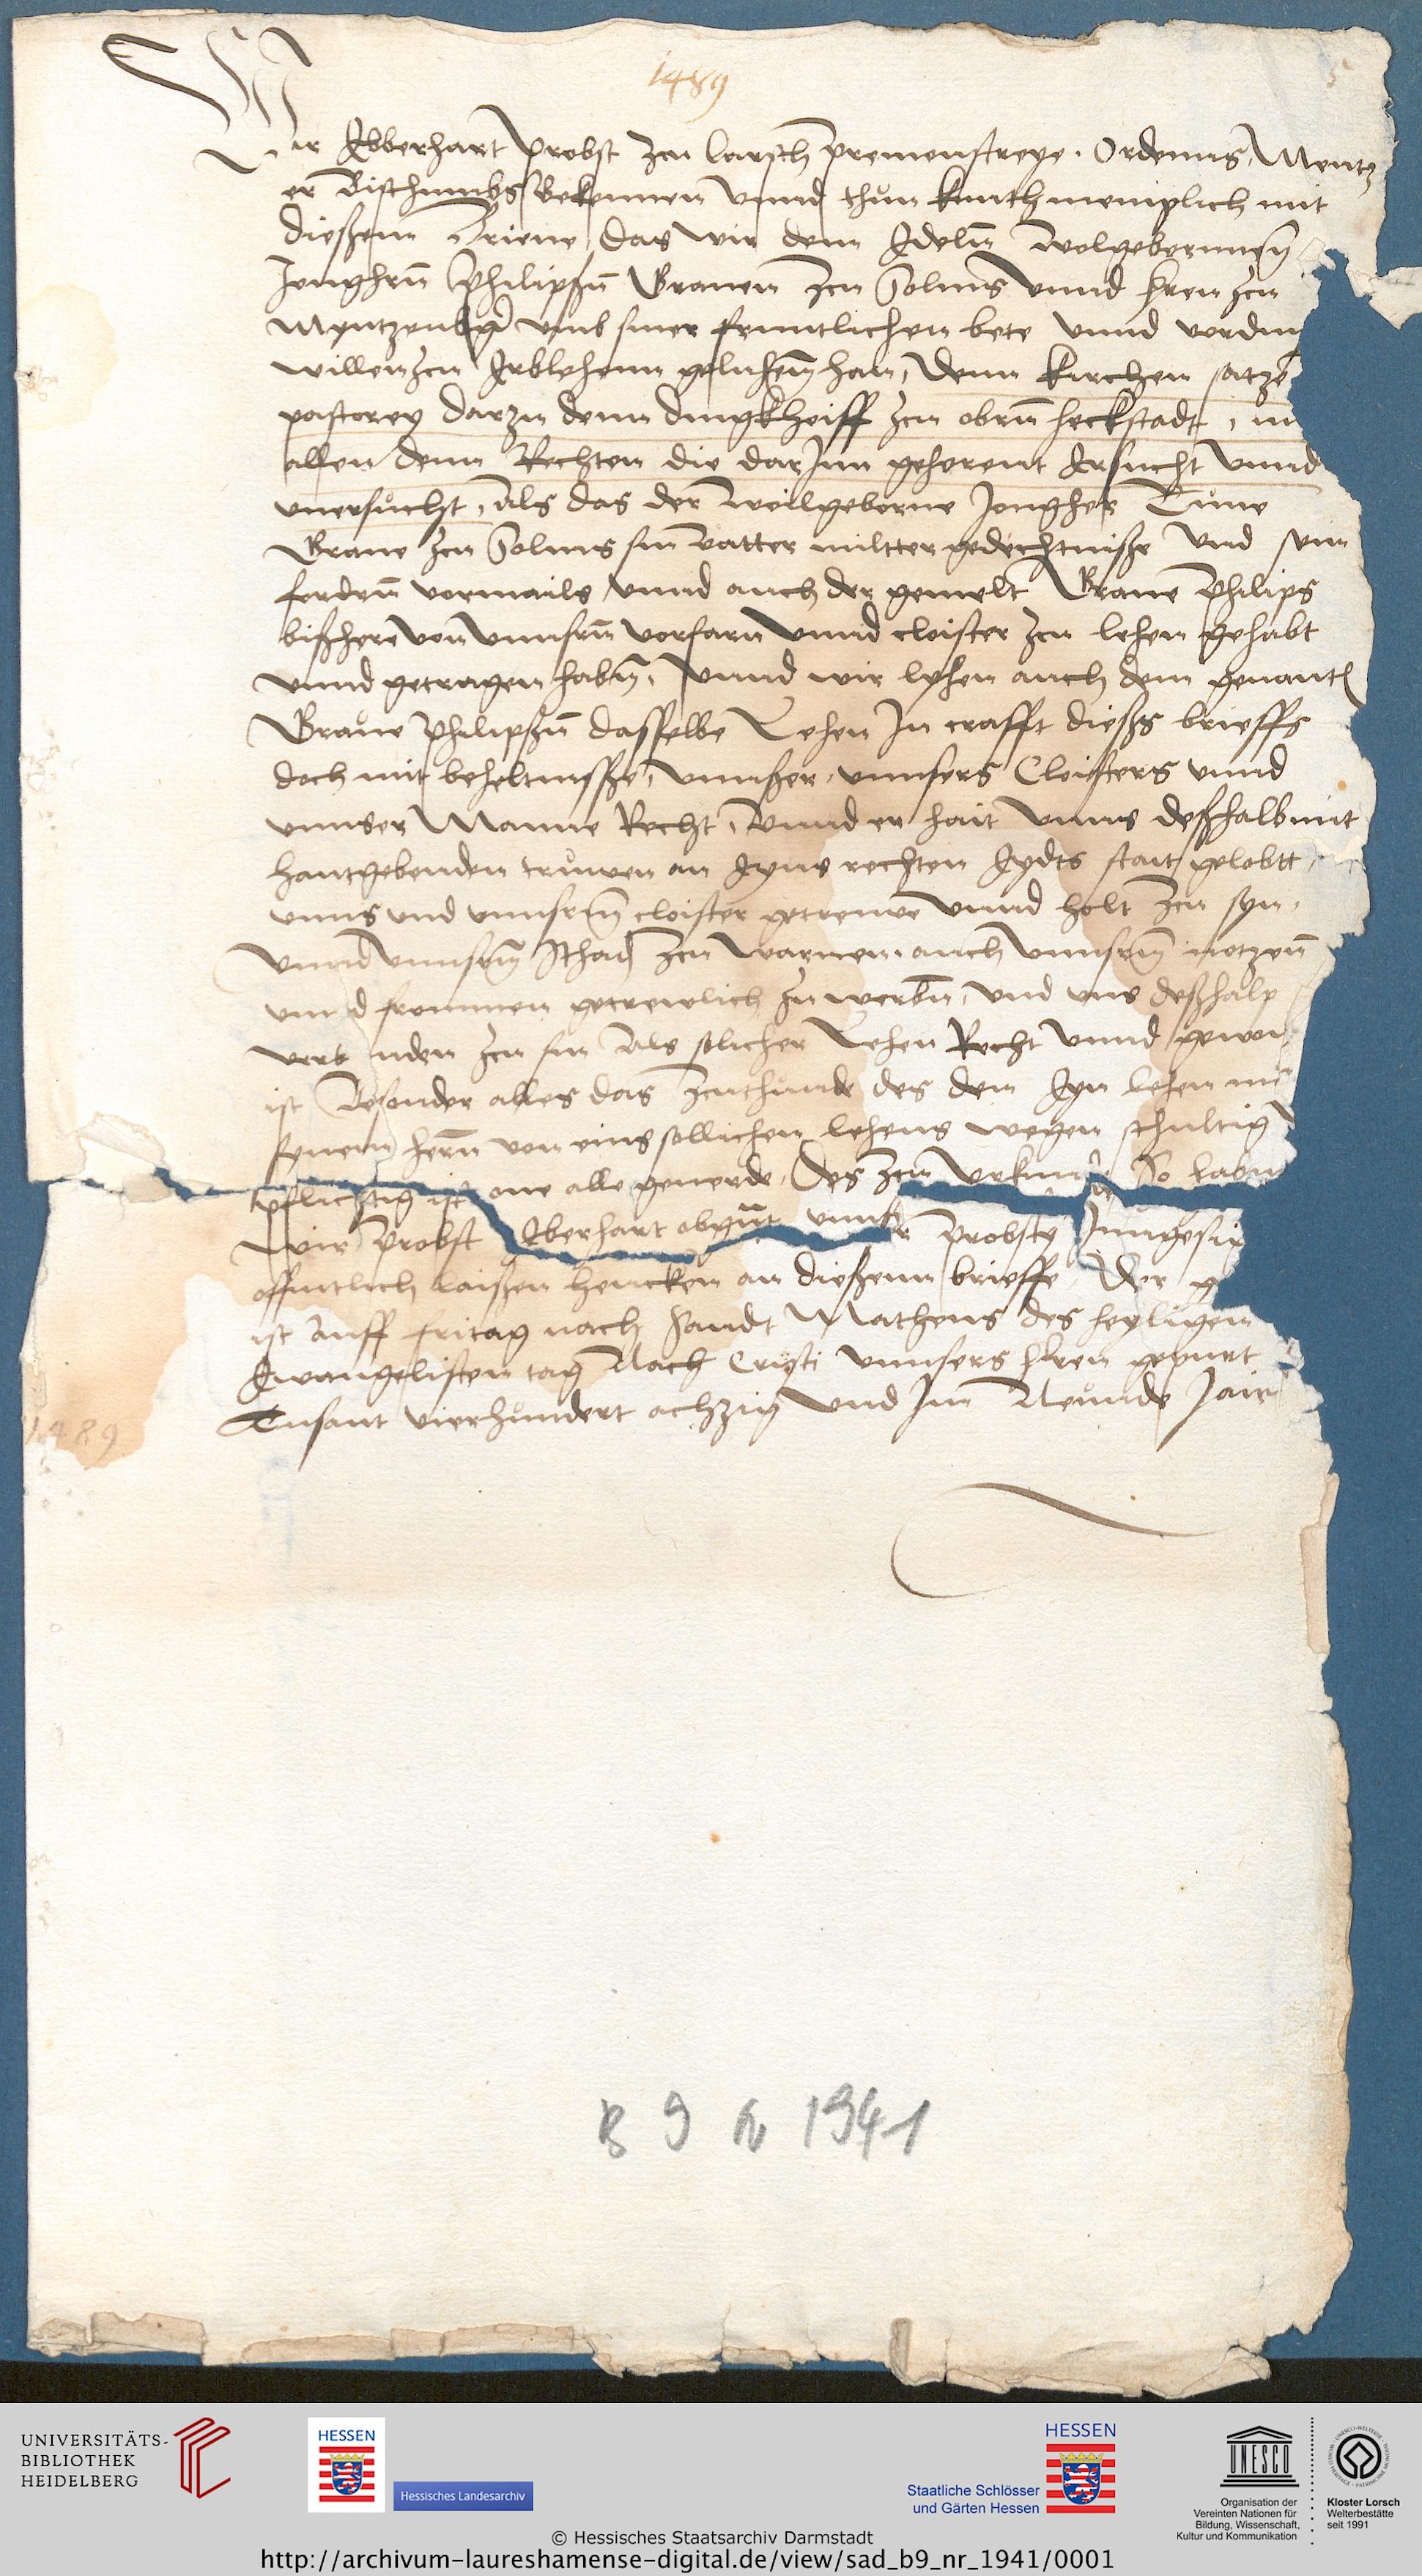 1489
Wir Ebberhart Probst zcu Larsch premonstreye Ordenns Mentz
er Bisthumbs Bekennen vnnd thun kunth meniplich mit
dießem Brieue das wir dem Edeln wolgebornnen
Jonghern Philipßen Grauen zcu Solms vnnd heren zcu
Myntzenberg vmb siner fruntlichen bete vnnd
willen zcu Erblehenn geluhenn han, Denn kirchen satze
pastorey darzu denn dingkhoiff zcu obrn heckstadt, in
allen denn Rechten die dar Inn gehorent Ersucht vnnd
vnersucht, Als das der wollgeborne Jongher Cune
Graue zcu Solms sin vatter miltter gedechtniße vnd sein
fordern vormails vnnd auch der gemelt Graue Philips
bißhere von vnnsern vorfarn vnnd cloister zcu lehen gehabt
vnnd getragen haben, vnnd wir lyhen auch dem genant
Graue Philipßen dasselbe Lehen In crafft dießs brieffs
doch mit beheltnisße, vnnßer, vnnsers Cloisters vnnd
vnnser Manne Recht, vnnd er hait vnns deßhalb mit
hantgebenden truwen an Eyns rechten Eydts stait gelobtt,
vnns vnd vnnserm cloister getreuwe vnnd holt zcu syn,
vnnd vnnserm schad zcu warnen, auch vnnserm notzenn
vnnd frommen getrewlich zu werben, vnd vns deßhalp
verb nden zcu sin Als solicher Lehen Recht vnnd gewon
ist Besonder alles das zcuthunde des den Eyn lehen
synem hern von eins sollichen lehens wegen schultig
pflichtig ist one alle geuerde, Des zcu vrkunde So habn
wir Probst Eberhart obgnt vnnser Probsty Inngesi
offintlich laißen hencken an dießenn brieffe, Der g
ist auff fritag nach Sandt Matheus des heyligen
Ewangelisten tag Nach Cristi vnnsers hren gepurt
Tusant vierhundert achzig vnd Im Neunde Jair
1489
B 9 N 1941
UNIVERSITÄTS-
BIBLIOTHEK
HEIDELBERG
HESSEN
Hessisches Landesarchiv
HESSEN
Staatliche Schlösser
und Gärten Hessen
UNESCO
Organisation der
Vereinten Nationen für
Bildung, Wissenschaft,
Kultur und Kommunikation
Kloster Lorsch
Welterbestätte
seit 1991
© Hessisches Staatsarchiv Darmstadt
http://archivum-laureshamense-digital.de/view/sad_b9_nr_1941/0001